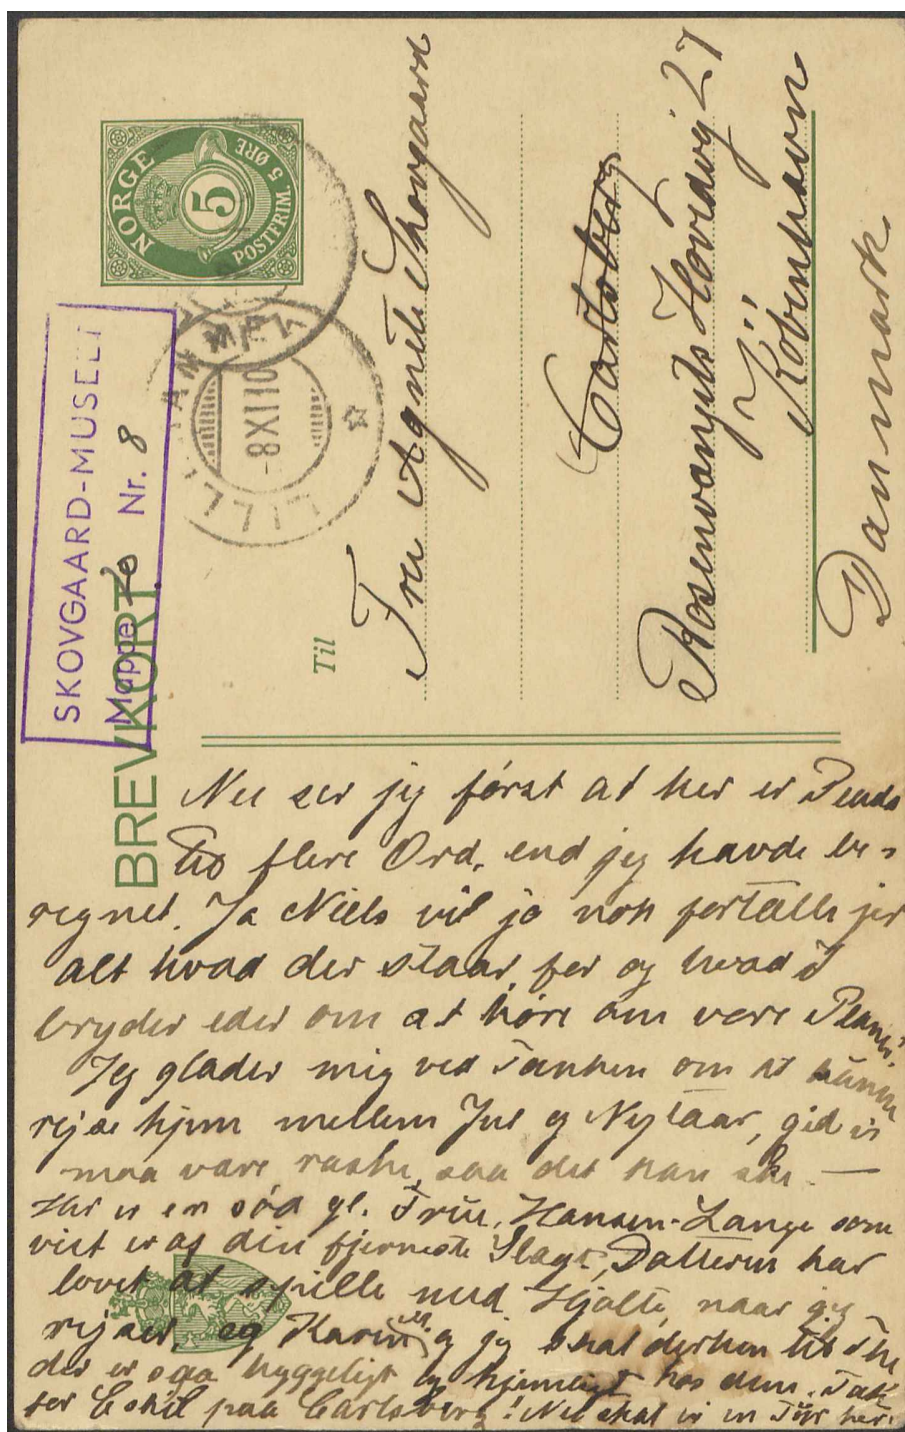 NORGE
5
POSTFRIM. 5 ØRE
LILLEHAMMER
-8 XI 10
SKOVGAARD-MUSEET
Mappe 10 Nr. 8
BREVKORT
Til
Fru Agnete Skovgaard
Rosenvængets Hovedvej 27
København
Danmark
Nu ser jeg først at her er Plads
til flere Ord, end jeg havde be-
regnet. Ja Niels vil jo nok fortælle jer
alt hvad der staar for og hvad I
bryder eder om at høre om vore Planer.
Jeg glæder mig ved Tanken om at kunne
rejse hjem mellem Jul og Nytaar, gid vi
maa være raske, saa det kan ske. —
Her er en sød gl. Frue, Hansen-Lange som
vist er af din fjerneste Slægt, Datteren har
lovet at spille med Hjalte, naar jeg
rejser, og Karin og jeg skal derhen til The
der er saa hyggeligt og hjemligt hos dem. Tak
for Eskil paa Carlsberg! Nu skal vi en Tur her.